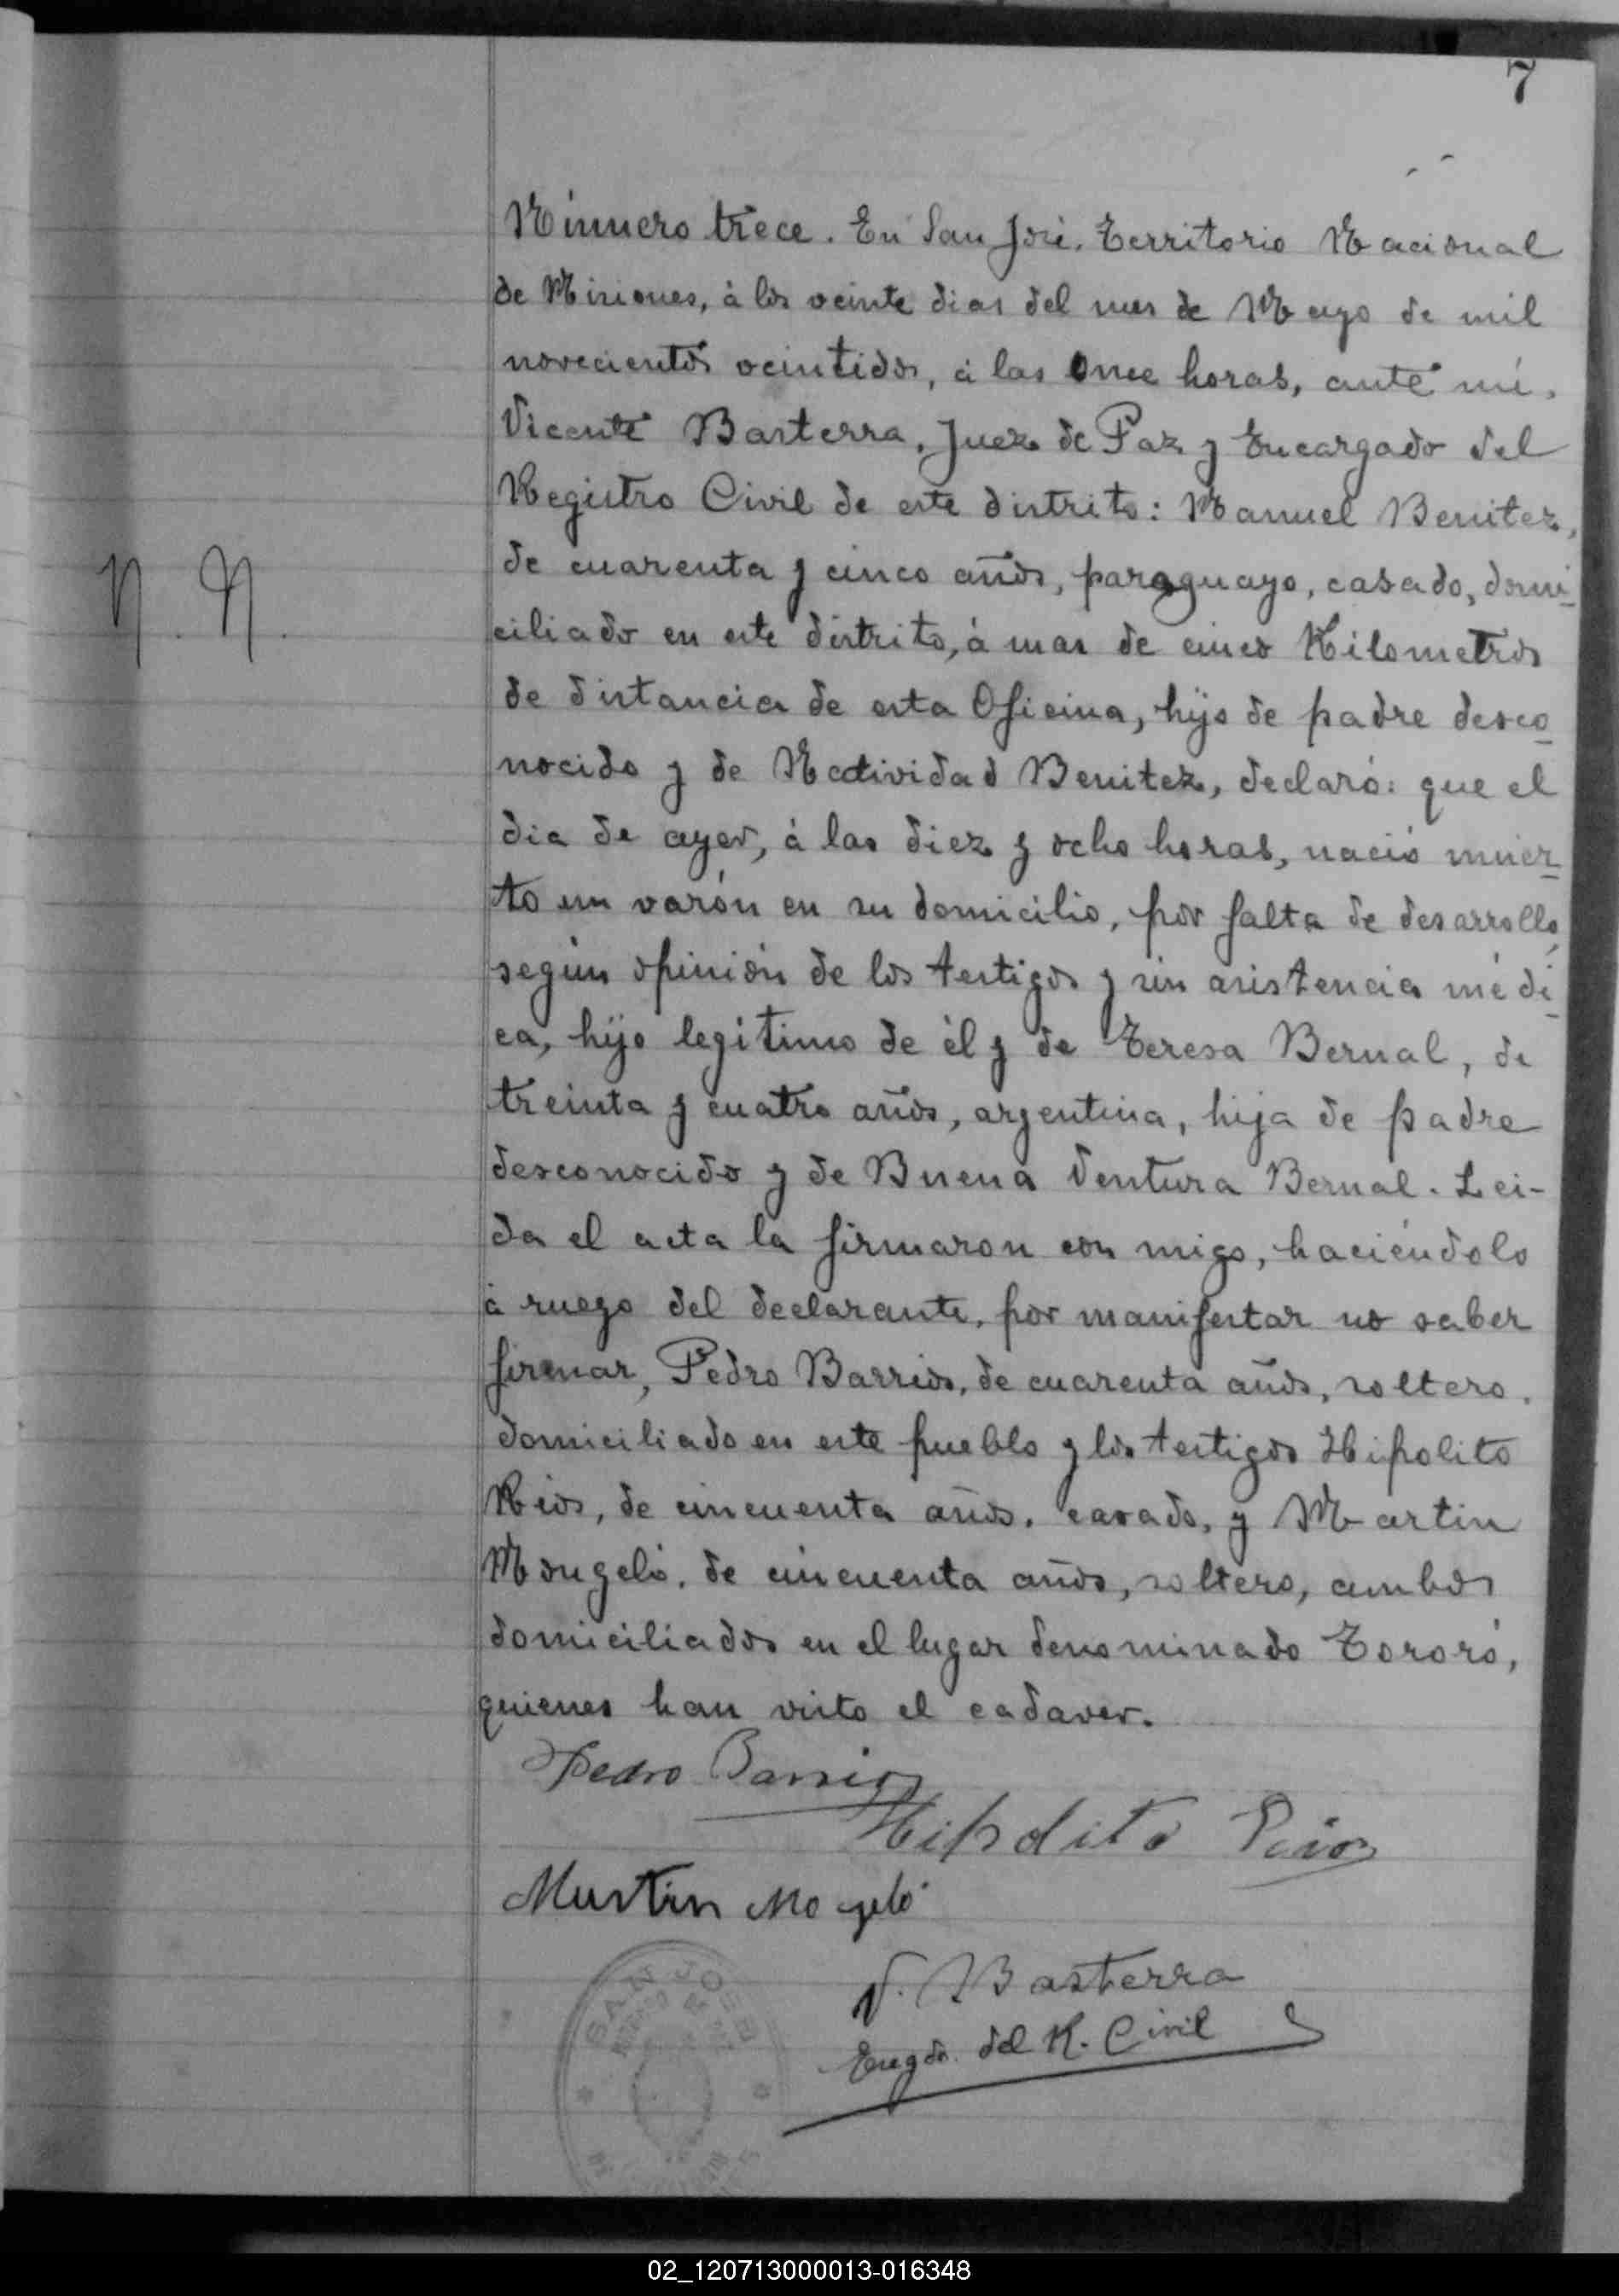 7
Número trece. En San José, Territorio Nacional
de Misiones, á los veinte dias del mes de Mayo de mil
novecientos veintidos, á las once horas, ante mí,
Vicente Basterra, Juez de Paz y Encargado del
Registro Civil de este distrito: Manuel Benitez,
N. N.
de cuarenta y cinco años, paraguayo, casado, domi-
ciliado en este distrito, á mas de cinco Kilometros
de distancia de esta Oficina, hijo de padre desco-
nocido y de Natividad Benitez, declaró: que el
dia de ayer, á las diez y ocho horas, nació muer-
to un varón en su domicilio, por falta de desarrollo,
según opinión de los testigos y sin asistencia médi-
ca, hijo legítimo de él y de Teresa Bernal, de
treinta y cuatro años, argentina, hija de padre
desconocido y de Buena Ventura Bernal. Lei-
da el acta la firmaron con migo, haciéndolo
á ruego del declarante, por manifestar no saber
firmar, Pedro Barrios, de cuarenta años, soltero,
domiciliado en este pueblo y los testigos Hipolito
Rios, de cincuenta años, casado, y Martin
Mongeló, de cincuenta años, soltero, ambos
domiciliados en el lugar denominado Tororó,
quienes han visto el cadaver.
Pedro Barrios
Hipolito Rios
Martin Mo geló
V. Basterra
Encgdo. del R. Civil
SAN JOSE
JUZGADO DE PAZ
02_120713000013-016348